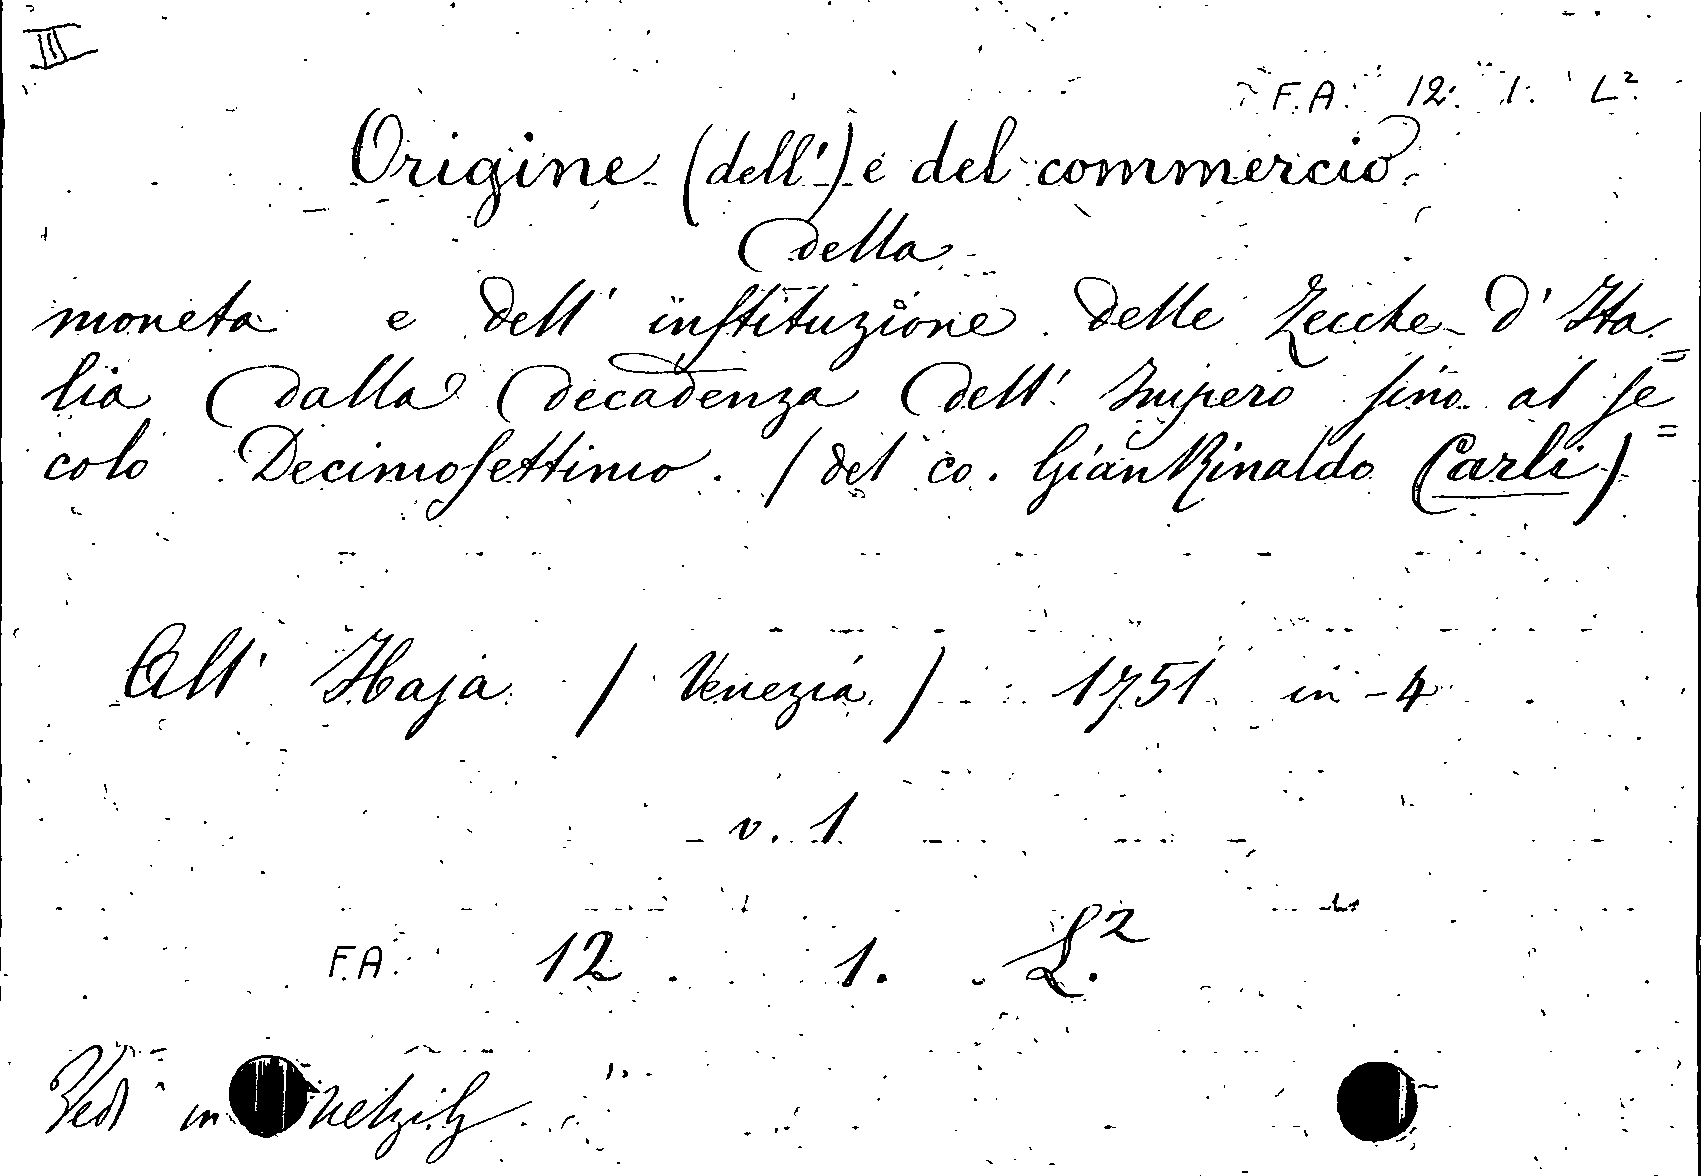 III
F.A. 12. 1. L²
Origine (dell') e del commercio
della
moneta e dell' instituzione delle Zecche d'Ita=
lia dalla decadenza dell' Impero sino al se=
colo Decimosettimo. (del co. Gian Rinaldo Carli)
All' Haja (Venezia) 1751 in-4
v. 1
F.A. 12. 1. L.²
Vedi in